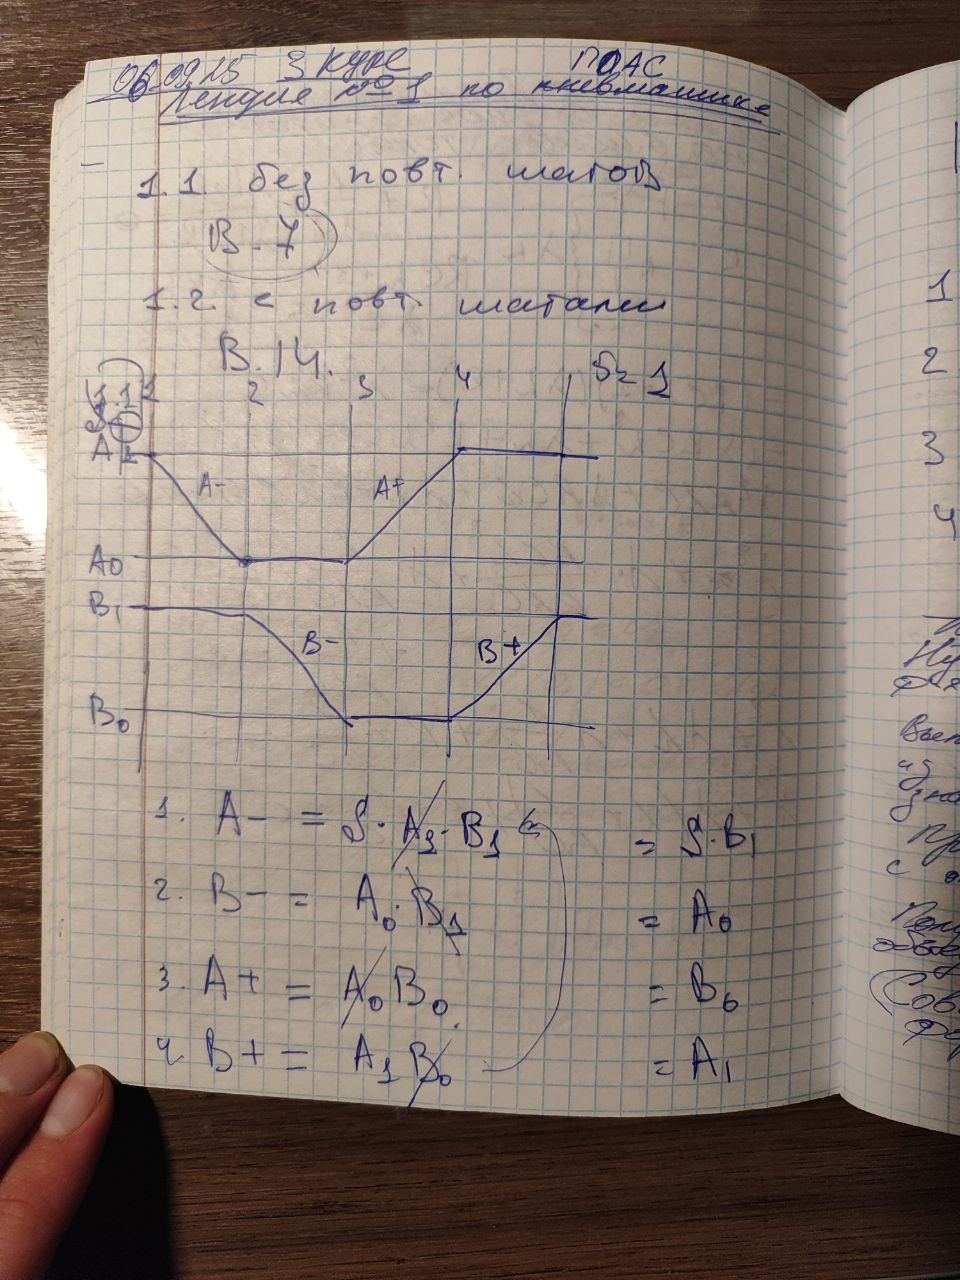 06.09.25 3 курс ПОАС
Лекция №1 по пневматике
1.1 без повт. шагов
В-7
1.2. с повт. шагами
В.14.
1 2 3 4 5=1
A1
A- A+
A0
B1
B- B+
B0
1. A- = S·A1·B1 = S·B1
2. B- = A0·B1 = A0
3. A+ = A0 B0. = B0
4. B+ = A1 B0 = A1
1
2
3
4